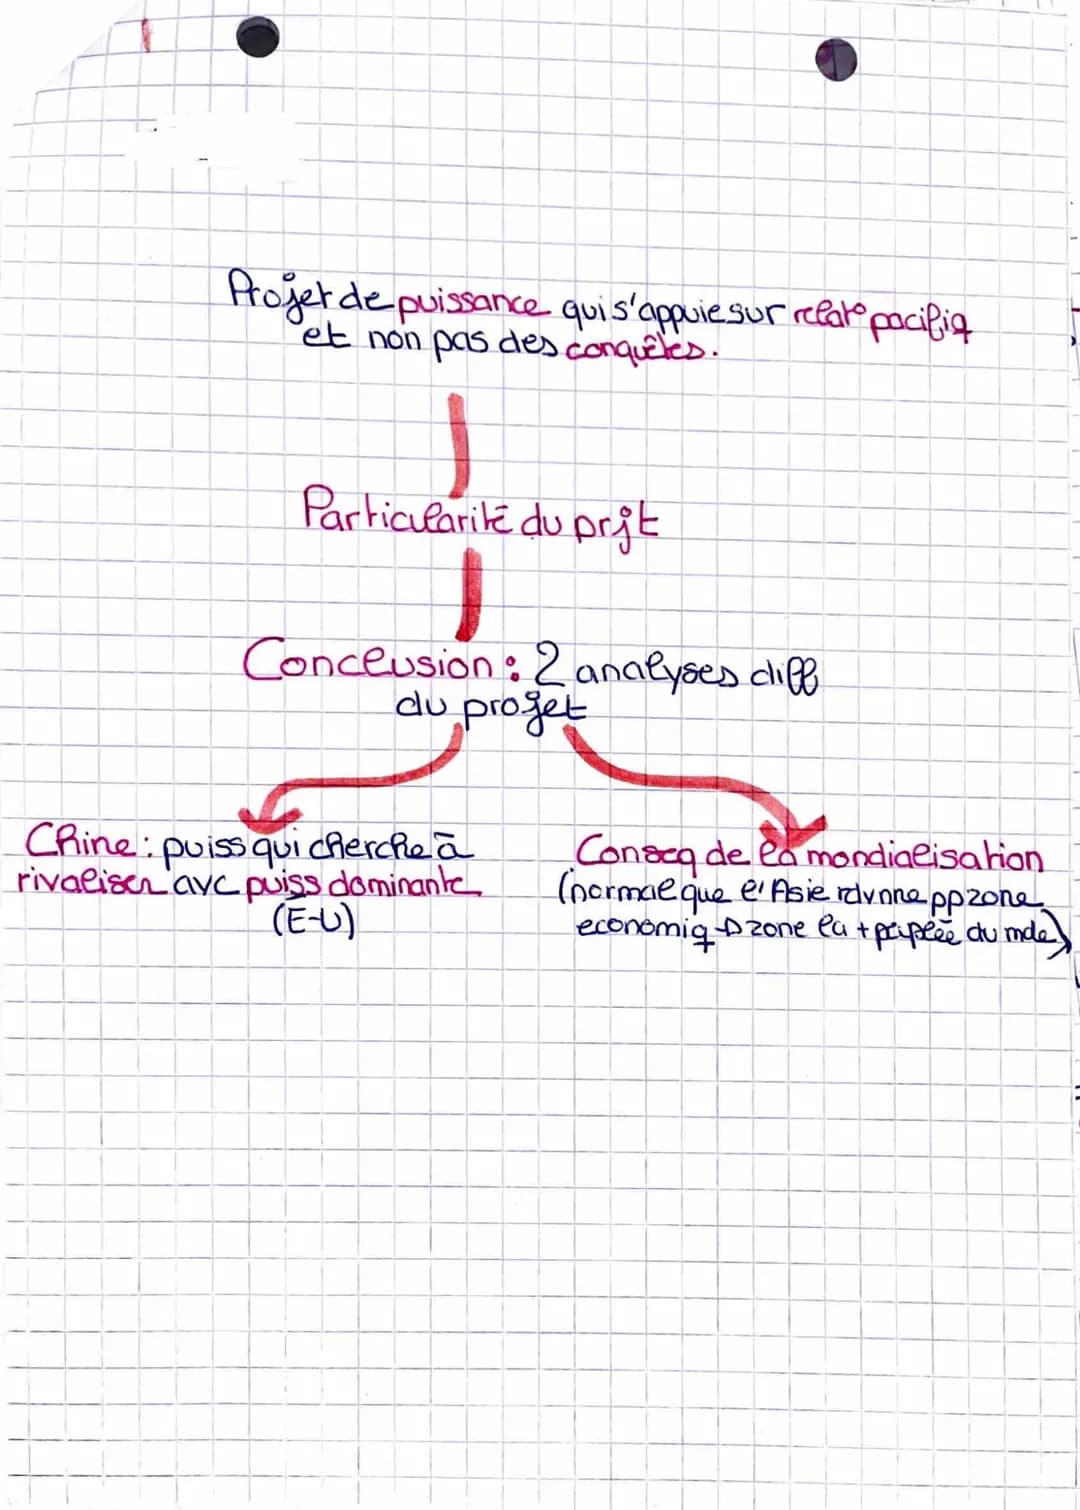 Projet de puissance qui s'appuie sur relat° pacifiq
et non pas des conquêtes.
Particularité du prjt
Conclusion : 2 analyses diff
du projet
Chine : puiss qui cherche à
rivaliser avc puiss dominante
(É-U)
Conseq de la mondialisation
(normal que l'Asie rdvnne pp zone
economiq → zone la + peuplée du mde)